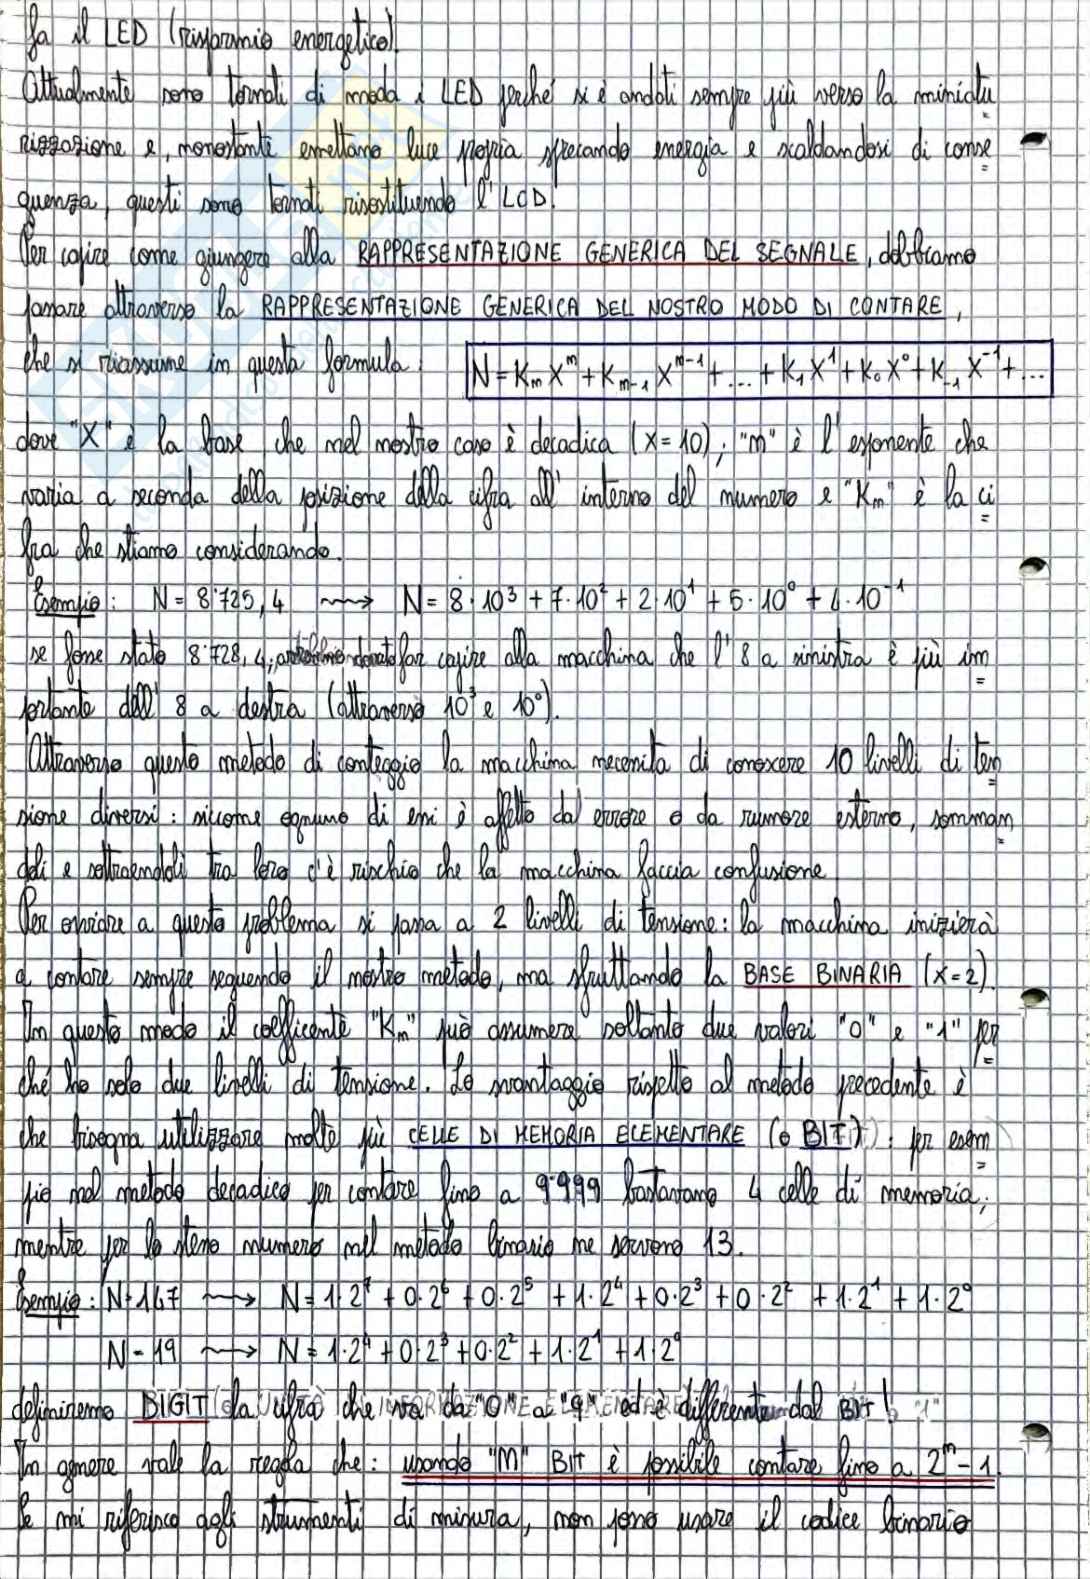 fa il LED (risparmio energetico).
Attualmente sono tornati di moda i LED perché si è andati sempre più verso la miniatu
rizzazione e, nonostante emettano luce propria sprecando energia e scaldandosi di conse
guenza, questi sono tornati risostituendo l'LCD.
Per capire come giungere alla RAPPRESENTAZIONE GENERICA DEL SEGNALE, dobbiamo
passare attraverso la RAPPRESENTAZIONE GENERICA DEL NOSTRO MODO DI CONTARE,
che si riassume in questa formula: N = Kₙ Xⁿ + Kₙ₋₁ Xⁿ⁻¹ + ... + K₁ X¹ + K₀ X⁰ + K₋₁ X⁻¹ + ...
dove "X" è la base che nel nostro caso è decadica (X = 10); "n" è l'esponente che
varia a seconda della posizione della cifra all'interno del numero e "Kₙ" è la ci
fra che stiamo considerando.
Esempio: N = 8'725,4 ⟿ N = 8·10³ + 7·10² + 2·10¹ + 5·10⁰ + 4·10⁻¹
se fosse stato 8'728,4, far capire alla macchina che l'8 a sinistra è più im
portante dell'8 a destra (attraverso 10³ e 10⁰).
Attraverso questo metodo di conteggio la macchina necessita di conoscere 10 livelli di ten
sione diversi: siccome ognuno di essi è affetto da errore o da rumore esterno, somman
doli e sottraendoli tra loro c'è rischio che la macchina faccia confusione
Per ovviare a questo problema si passa a 2 livelli di tensione: la macchina inizierà
a contare sempre seguendo il nostro metodo, ma sfruttando la BASE BINARIA (X=2).
In questo modo il coefficente "Kₙ" può assumere soltanto due valori "0" e "1" per
ché ho solo due livelli di tensione. Lo svantaggio rispetto al metodo precedente è
che bisogna utilizzare molte più CELLE DI MEMORIA ELEMENTARE (o BIT): per esem
pio nel metodo decadico per contare fino a 9'999 bastavano 4 celle di memoria;
mentre per lo steso numero nel metodo binario ne servono 13.
Esempio: N=147 ⟿ N = 1·2⁷ + 0·2⁶ + 0·2⁵ + 1·2⁴ + 0·2³ + 0·2² + 1·2¹ + 1·2⁰
N = 19 ⟿ N = 1·2⁴ + 0·2³ + 0·2² + 1·2¹ + 1·2⁰
definiremo BIGIT la cifra che va da "0" a "9" ed è differente dal BIT!
In genere vale la regola che: usando "M" BIT è possibile contare fino a 2ᵐ - 1.
Se mi riferisco agli strumenti di misura, non posso usare il codice binario